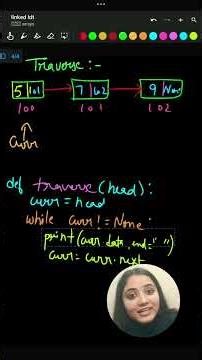 linked list
Traverse :-
5 101 7 102 9 None
100 101 102
curr
def traverse(head):
curr = head
while curr != None:
print(curr.data, end=" ")
curr = curr.next